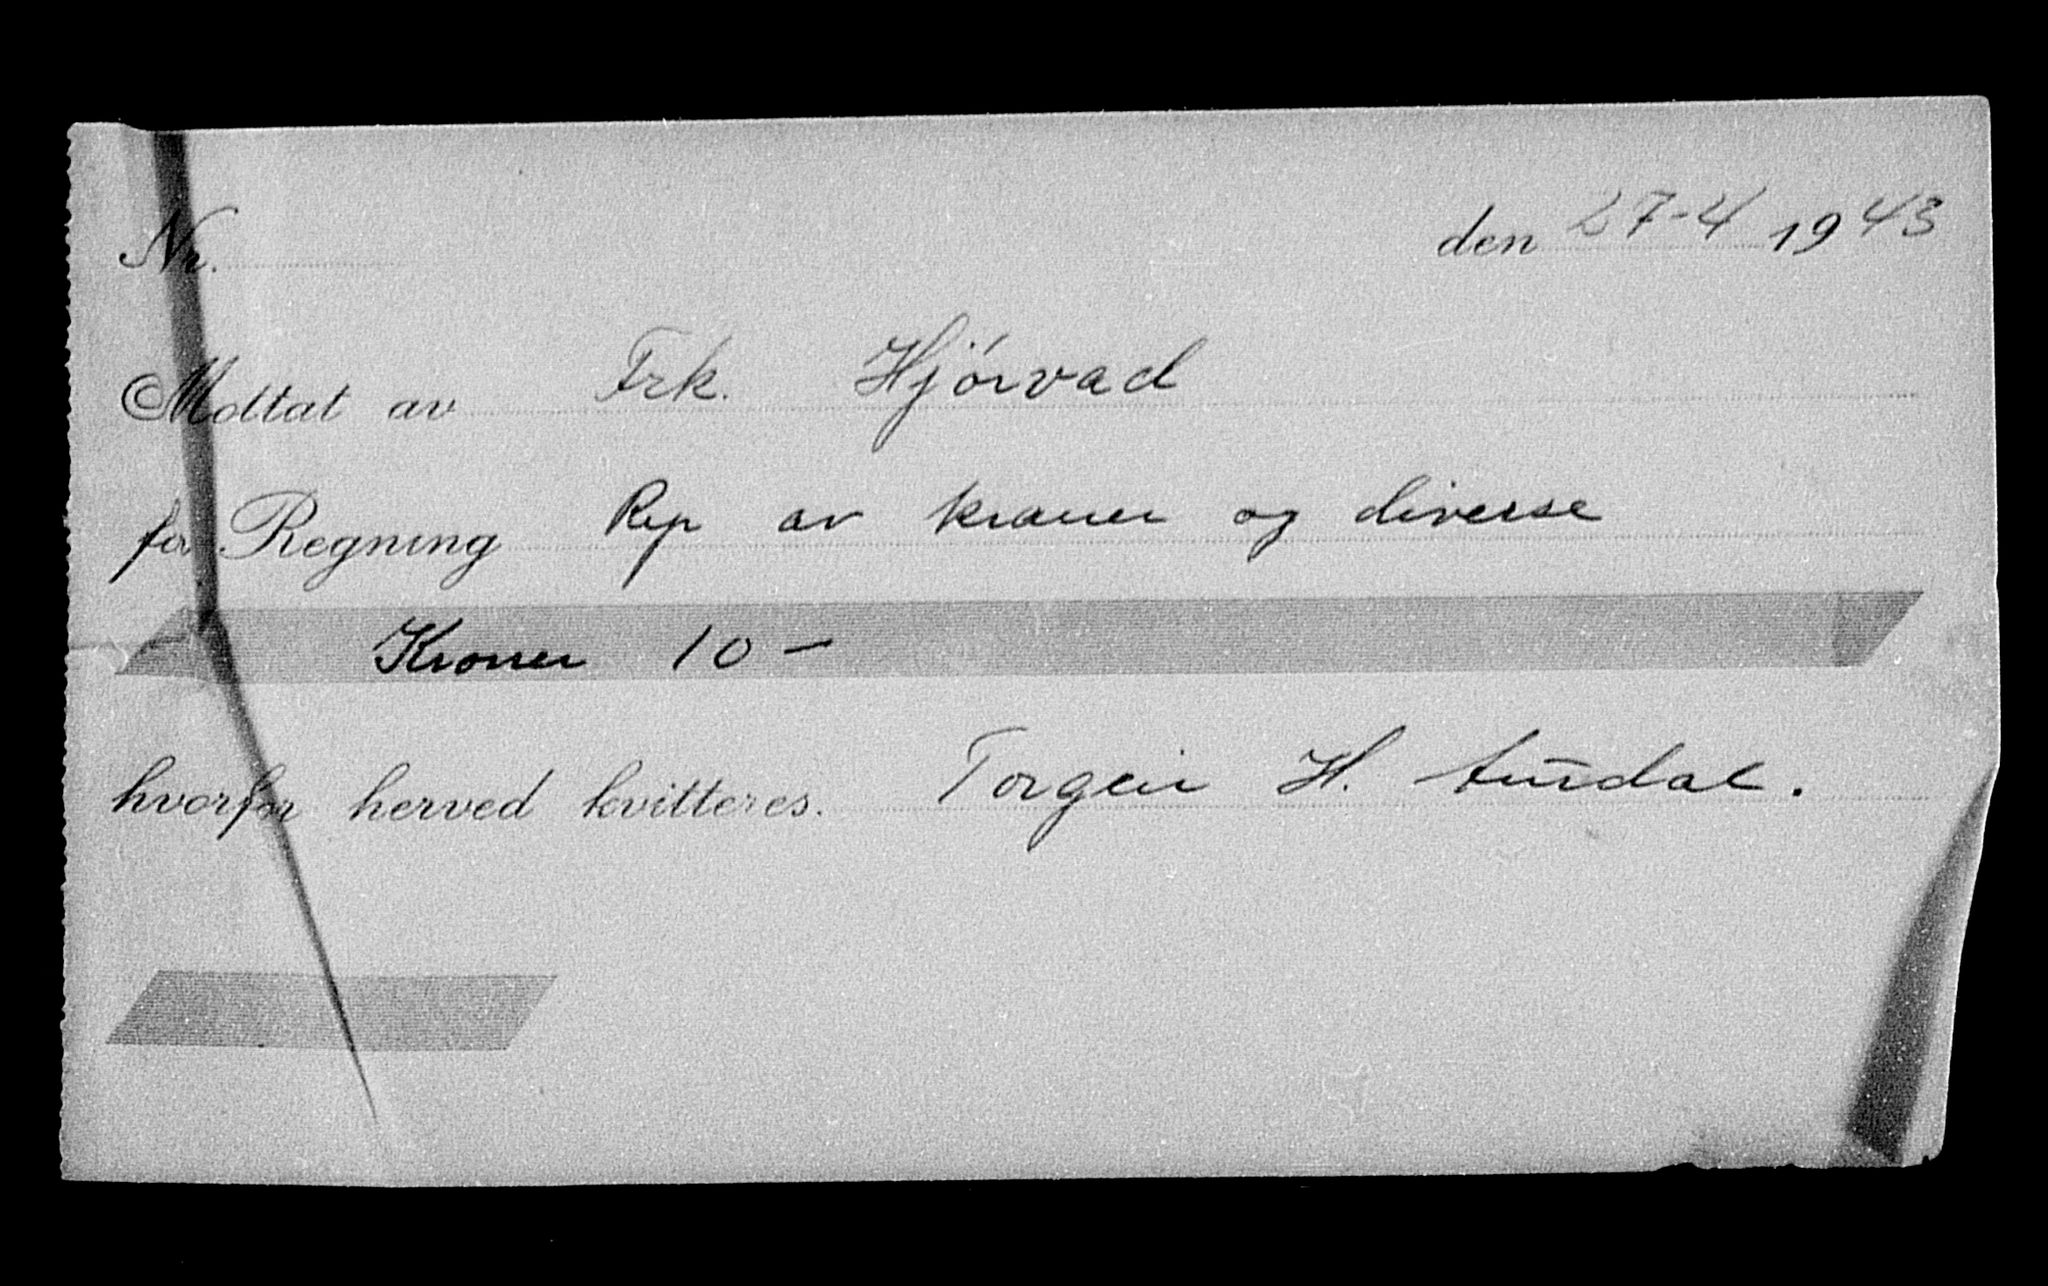 Nr. den 27-4 1943
Mottat av Frk. Hjórvad
for Regning Rep av kraner og diverse
Kroner 10 —
hvorfor herved kvitteres. Torgeir H.